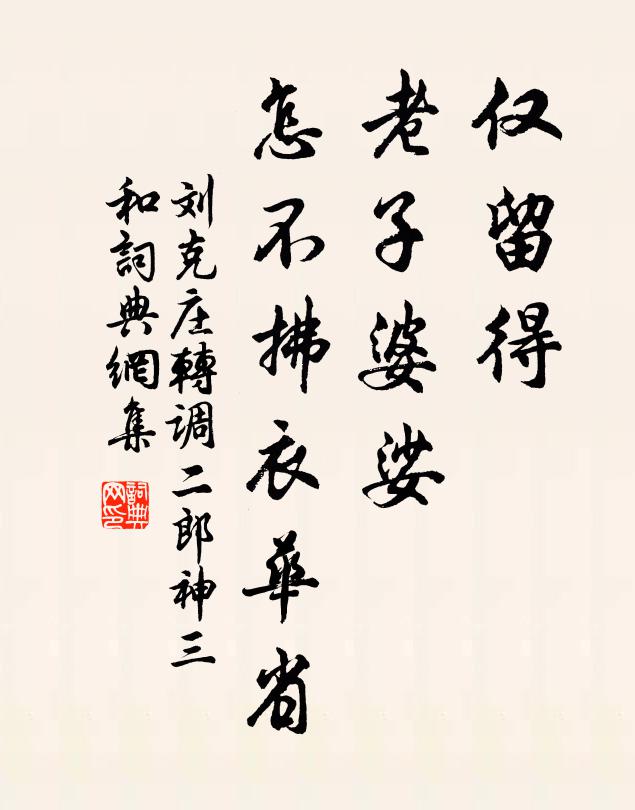 仅留得
老子婆娑
怎不拂衣華省
刘克庄轉调二郎神三
和詞典網集
詞典
网印